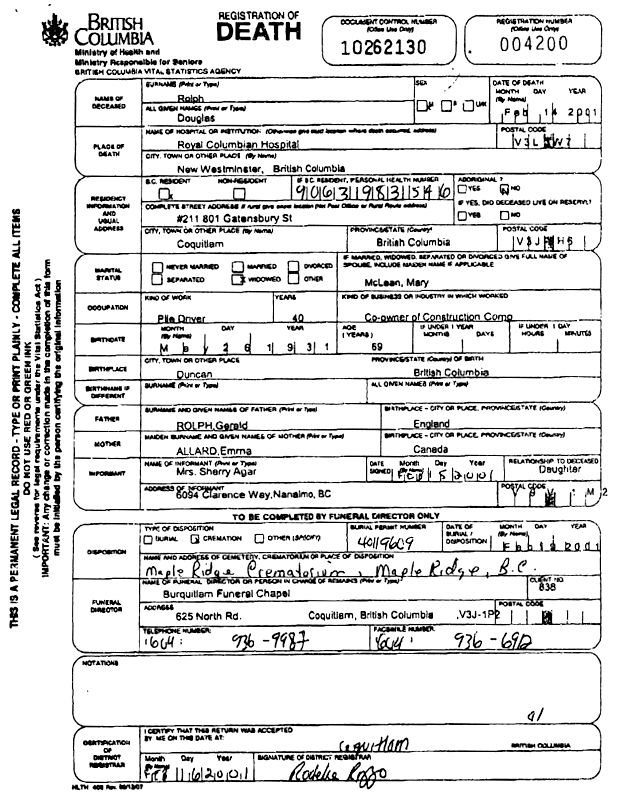 BRITISH COLUMBIA
Ministry of Health and
Ministry Responsible for Seniors
BRITISH COLUMBIA VITAL STATISTICS AGENCY
REGISTRATION OF
DEATH
DOCUMENT CONTROL NUMBER
(Office Use Only)
10262130
REGISTRATION NUMBER
(Office Use Only)
004200
THIS IS A PERMANENT LEGAL RECORD - TYPE OR PRINT PLAINLY - COMPLETE ALL ITEMS
DO NOT USE RED OR GREEN INK
( See reverse for legal requirements under the Vital Statistics Act )
IMPORTANT: Any change or correction made in the completion of this form
must be initialled by the person certifying the original information
NAME OF DECEASED
SURNAME (Print or Type)
Rolph
ALL GIVEN NAMES (Print or Type)
Douglas
SEX
M F UNK
DATE OF DEATH
MONTH DAY YEAR
(By Name)
Feb 14 2001
PLACE OF DEATH
NAME OF HOSPITAL OR INSTITUTION (Otherwise give exact location where death occurred, address)
Royal Columbian Hospital
POSTAL CODE
V3L W7
CITY, TOWN OR OTHER PLACE (By Name)
New Westminster, British Columbia
RESIDENCY INFORMATION AND USUAL ADDRESS
B.C. RESIDENT NON-RESIDENT
x
IF B.C. RESIDENT, PERSONAL HEALTH NUMBER
906319831546
ABORIGINAL ?
YES NO
IF YES, DID DECEASED LIVE ON RESERVE?
YES NO
COMPLETE STREET ADDRESS If rural give exact location (Not Post Office or Rural Route address)
#211 801 Gatensbury St
CITY, TOWN OR OTHER PLACE (By Name)
Coquitlam
PROVINCE/STATE (Country)
British Columbia
POSTAL CODE
V3J H6
MARITAL STATUS
NEVER MARRIED MARRIED DIVORCED
SEPARATED X WIDOWED OTHER
IF MARRIED, WIDOWED, SEPARATED OR DIVORCED GIVE FULL NAME OF
SPOUSE, INCLUDE MAIDEN NAME IF APPLICABLE
McLean, Mary
OCCUPATION
KIND OF WORK
Pile Driver
YEARS
40
KIND OF BUSINESS OR INDUSTRY IN WHICH WORKED
Co-owner of Construction Comp
BIRTHDATE
MONTH DAY YEAR
May 26 1931
AGE (YEARS)
69
IF UNDER 1 YEAR
MONTHS DAYS
IF UNDER 1 DAY
HOURS MINUTES
BIRTHPLACE
CITY, TOWN OR OTHER PLACE
Duncan
PROVINCE/STATE (Country) OF BIRTH
British Columbia
BIRTHNAME IF DIFFERENT
SURNAME (Print or Type)
ALL GIVEN NAMES (Print or Type)
FATHER
SURNAME AND GIVEN NAMES OF FATHER (Print or Type)
ROLPH,Gerald
BIRTHPLACE - CITY OR PLACE, PROVINCE/STATE (Country)
England
MOTHER
MAIDEN SURNAME AND GIVEN NAMES OF MOTHER (Print or Type)
ALLARD,Emma
BIRTHPLACE - CITY OR PLACE, PROVINCE/STATE (Country)
Canada
INFORMANT
NAME OF INFORMANT (Print or Type)
Mrs. Sherry Agar
DATE SIGNED
Month Day Year
FEB 15 2001
RELATIONSHIP TO DECEASED
Daughter
ADDRESS OF INFORMANT
6094 Clarence Way,Nanaimo, BC
POSTAL CODE
TO BE COMPLETED BY FUNERAL DIRECTOR ONLY
DISPOSITION
TYPE OF DISPOSITION
BURIAL X CREMATION OTHER (SPECIFY)
BURIAL PERMIT NUMBER
40119609
DATE OF BURIAL / DISPOSITION
MONTH DAY YEAR
(By Name)
Feb 2001
NAME AND ADDRESS OF CEMETERY, CREMATORIUM OR PLACE OF DISPOSITION
Maple Ridge Crematorium, Maple Ridge, B.C.
FUNERAL DIRECTOR
NAME OF FUNERAL DIRECTOR OR PERSON IN CHARGE OF REMAINS (Print or Type)
Burquitlam Funeral Chapel
CLIENT NO.
838
ADDRESS
625 North Rd. Coquitlam, British Columbia ,V3J-1P2
POSTAL CODE
TELEPHONE NUMBER:
604: 936-9987
FACSIMILE NUMBER:
604: 936-6912
NOTATIONS
CERTIFICATION OF DISTRICT REGISTRAR
I CERTIFY THAT THIS RETURN WAS ACCEPTED
BY ME ON THIS DATE AT:
Coquitlam
BRITISH COLUMBIA
Month Day Year
(By Name)
FEB 16 2001
SIGNATURE OF DISTRICT REGISTRAR